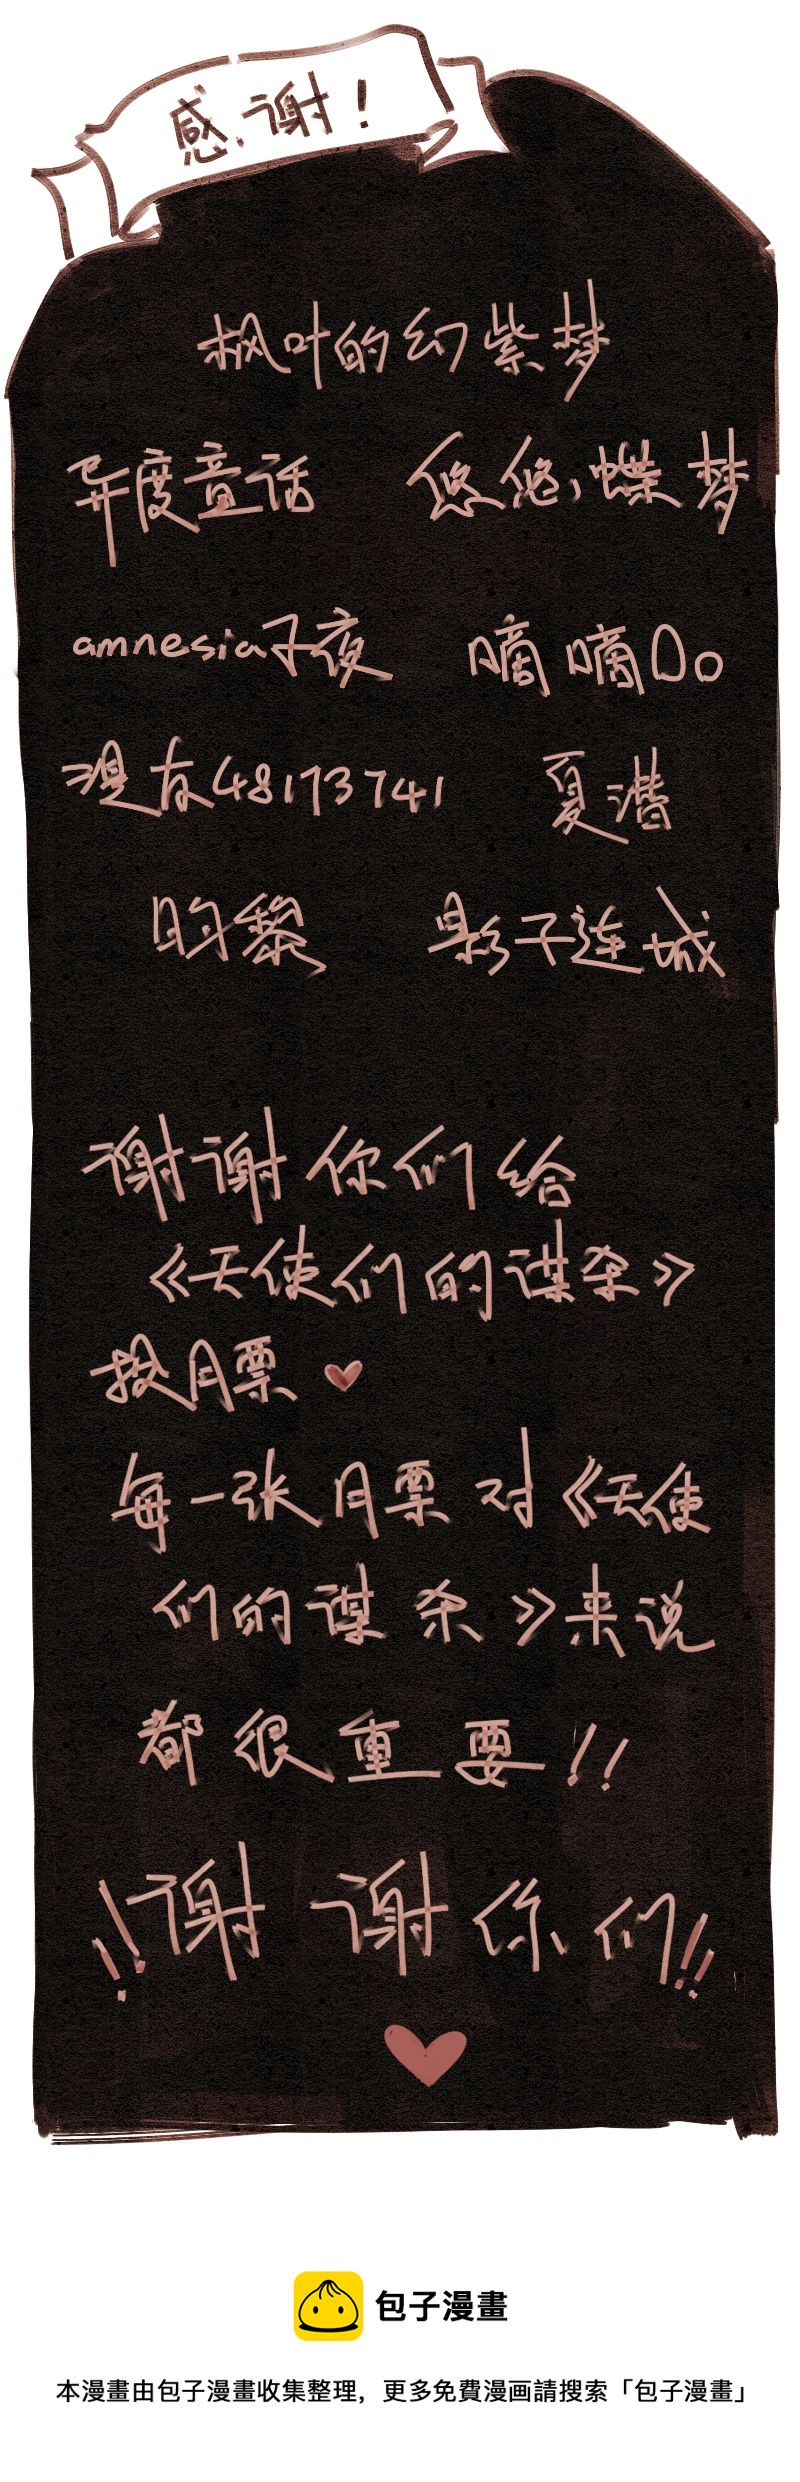 感谢！
枫叶的幻紫梦
异度童话 悠悠，蝶梦
amnesia子夜 嘀嘀Do
没有48173741 夏潜
昀黎 影子连城
谢谢你们给
《天使们的谋杀》
投月票
每一张月票对《天使
们的谋杀》来说
都很重要！！
！！谢谢你们！！
包子漫畫
本漫畫由包子漫畫收集整理，更多免費漫画請搜索「包子漫畫」